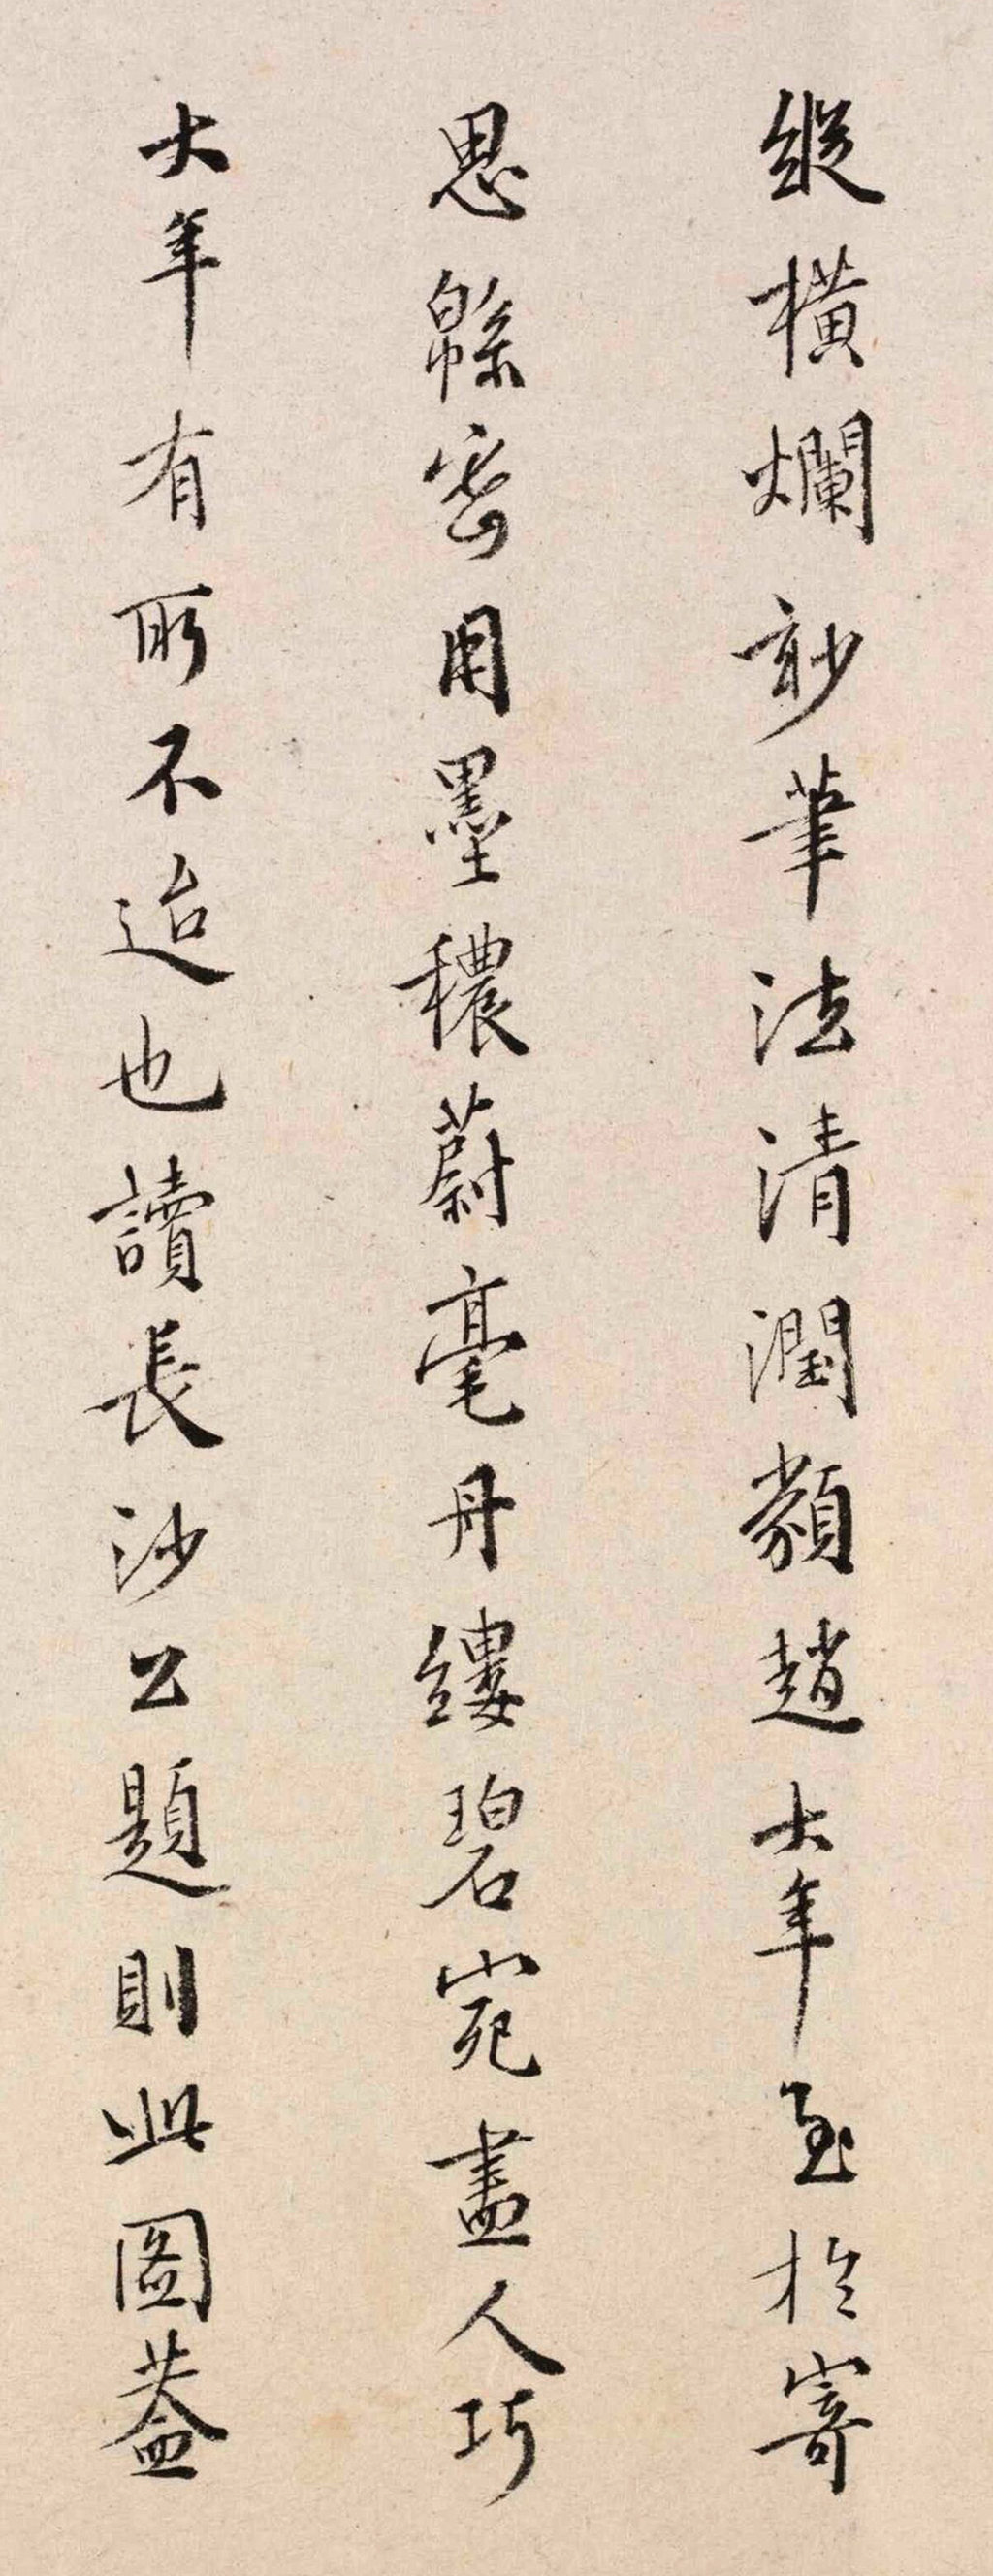 縱橫爛玅筆法清潤類趙大年至於寄
思緜密用墨穠蔚毫丹縷碧宛盡人巧
大年有所不迨也讀長沙公題則此圖葢